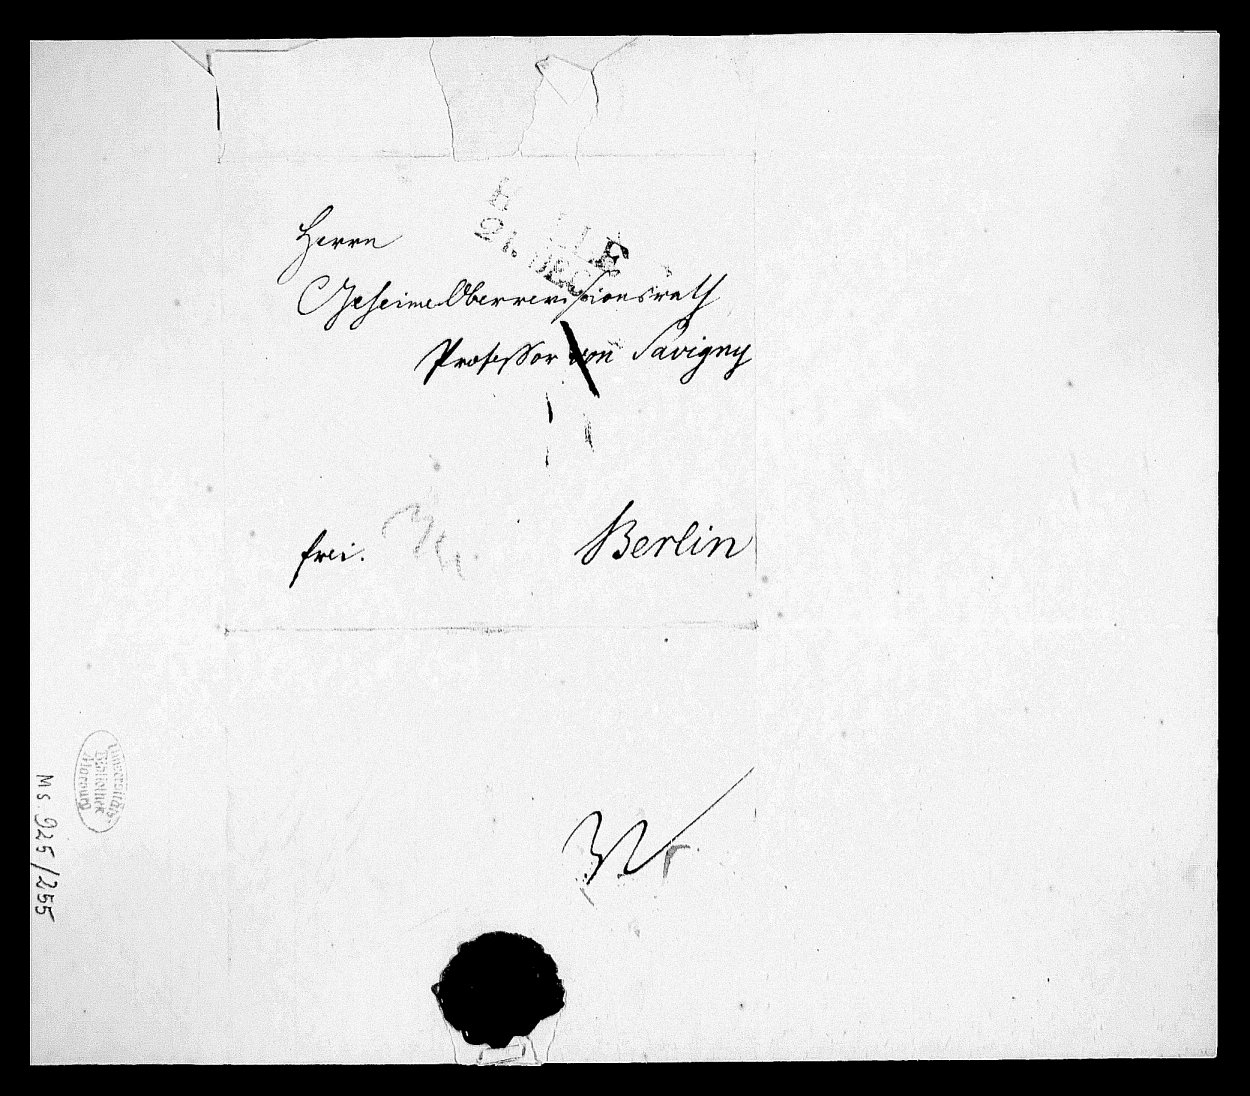 Herrn
21. DEC
Geheime Oberrevisionsrath
Professor von Savigny
frei.
Berlin
Universitäts-
Bibliothek
Marburg
Ms. 925/255